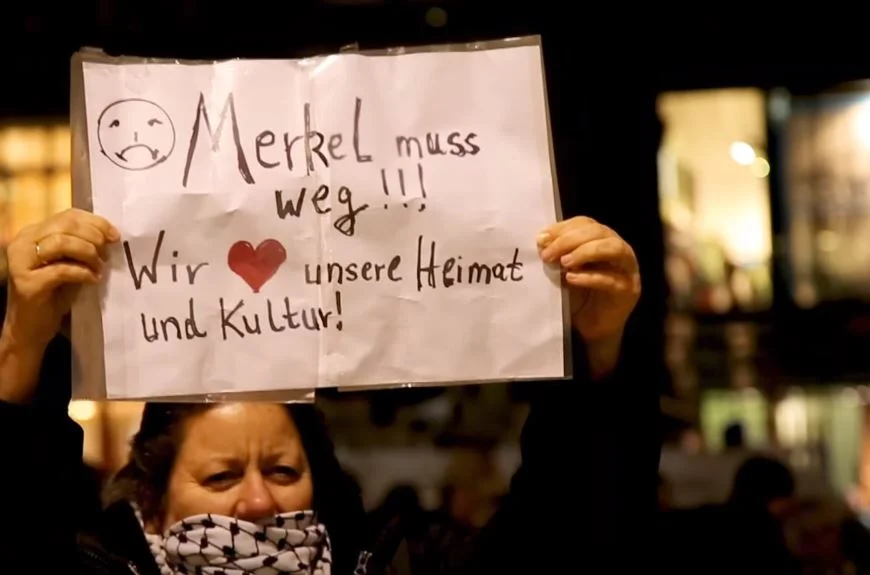 Merkel muss
weg!!!
Wir ❤ unsere Heimat
und Kultur!